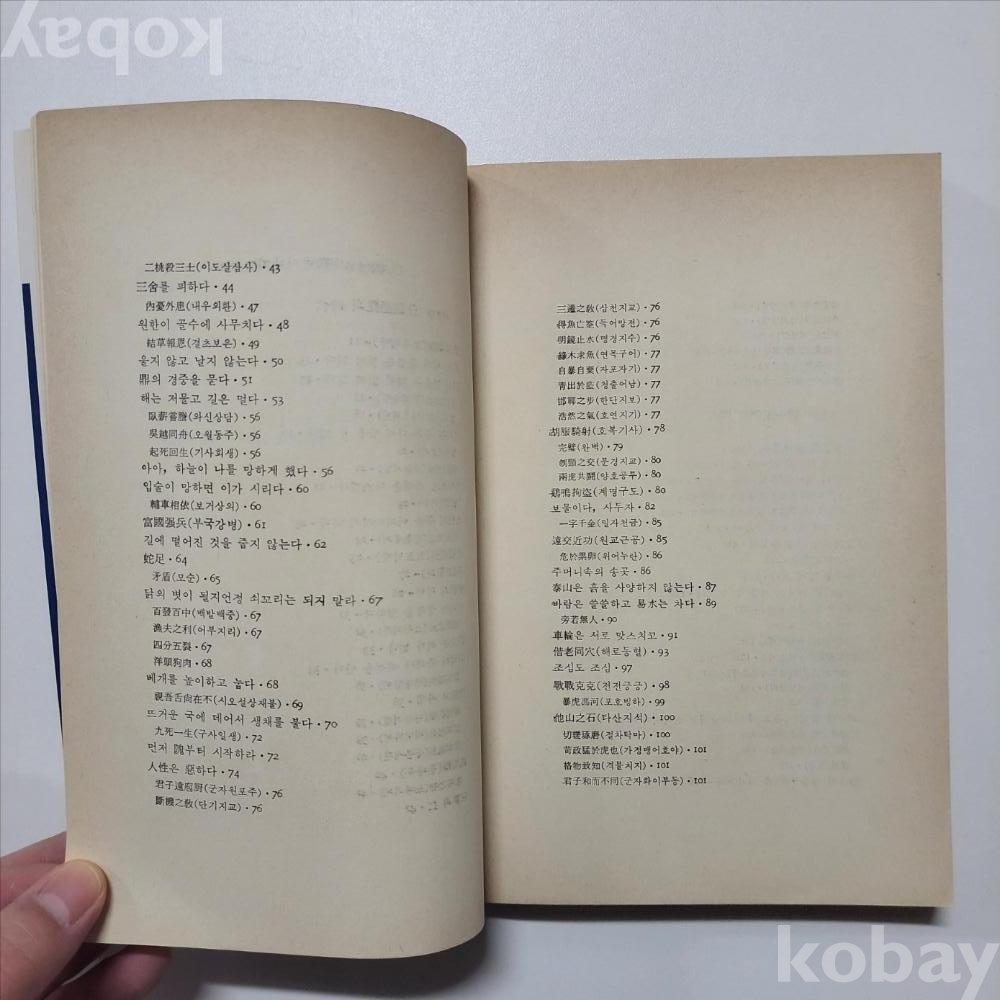 kobay
二桃殺三士(이도살삼사)·43
三舍를 피하다·44
內憂外患(내우외환)·47
원한이 골수에 사무치다·48
結草報恩(결초보은)·49
울지 않고 날지 않는다·50
鼎의 경중을 묻다·51
해는 저물고 길은 멀다·53
臥薪嘗膽(와신상담)·56
吳越同舟(오월동주)·56
起死回生(기사회생)·56
아아, 하늘이 나를 망하게 했다·56
입술이 망하면 이가 시리다·60
輔車相依(보거상의)·60
富國强兵(부국강병)·61
길에 떨어진 것을 줍지 않는다·62
蛇足·64
矛盾(모순)·65
닭의 볏이 될지언정 쇠꼬리는 되지 말라·67
百發百中(백발백중)·67
漁夫之利(어부지리)·67
四分五裂·67
羊頭狗肉·68
베개를 높이하고 눕다·68
視吾舌尙在不(시오설상재불)·69
뜨거운 국에 데어서 생채를 불다·70
九死一生(구사일생)·72
먼저 隗부터 시작하라·72
人性은 惡하다·74
君子遠庖厨(군자원포주)·76
斷機之敎(단기지교)·76
三遷之敎(삼천지교)·76
得魚亡筌(득어망전)·76
明鏡止水(명경지수)·76
緣木求魚(연목구어)·77
自暴自棄(자포자기)·77
靑出於藍(청출어남)·77
邯鄲之步(한단지보)·77
浩然之氣(호연지기)·77
胡服騎射(호복기사)·78
完璧(완벽)·79
刎頸之交(문경지교)·80
兩虎共鬪(양호공투)·80
鷄鳴狗盜(계명구도)·80
보물이다, 사두자·82
一字千金(일자천금)·85
遠交近功(원교근공)·85
危於累卵(위어누란)·86
주머니속의 송곳·86
泰山은 흙을 사양하지 않는다·87
바람은 쓸쓸하고 易水는 차다·89
旁若無人·90
車輪은 서로 맞스치고·91
偕老同穴(해로동혈)·93
조심도 조심·97
戰戰克克(전전긍긍)·98
暴虎馮河(포호빙하)·99
他山之石(타산지석)·100
切瑳琢磨(절차탁마)·100
苛政猛於虎也(가정맹어호야)·101
格物致知(격물치지)·101
君子和而不同(군자화이부동)·101
kobay